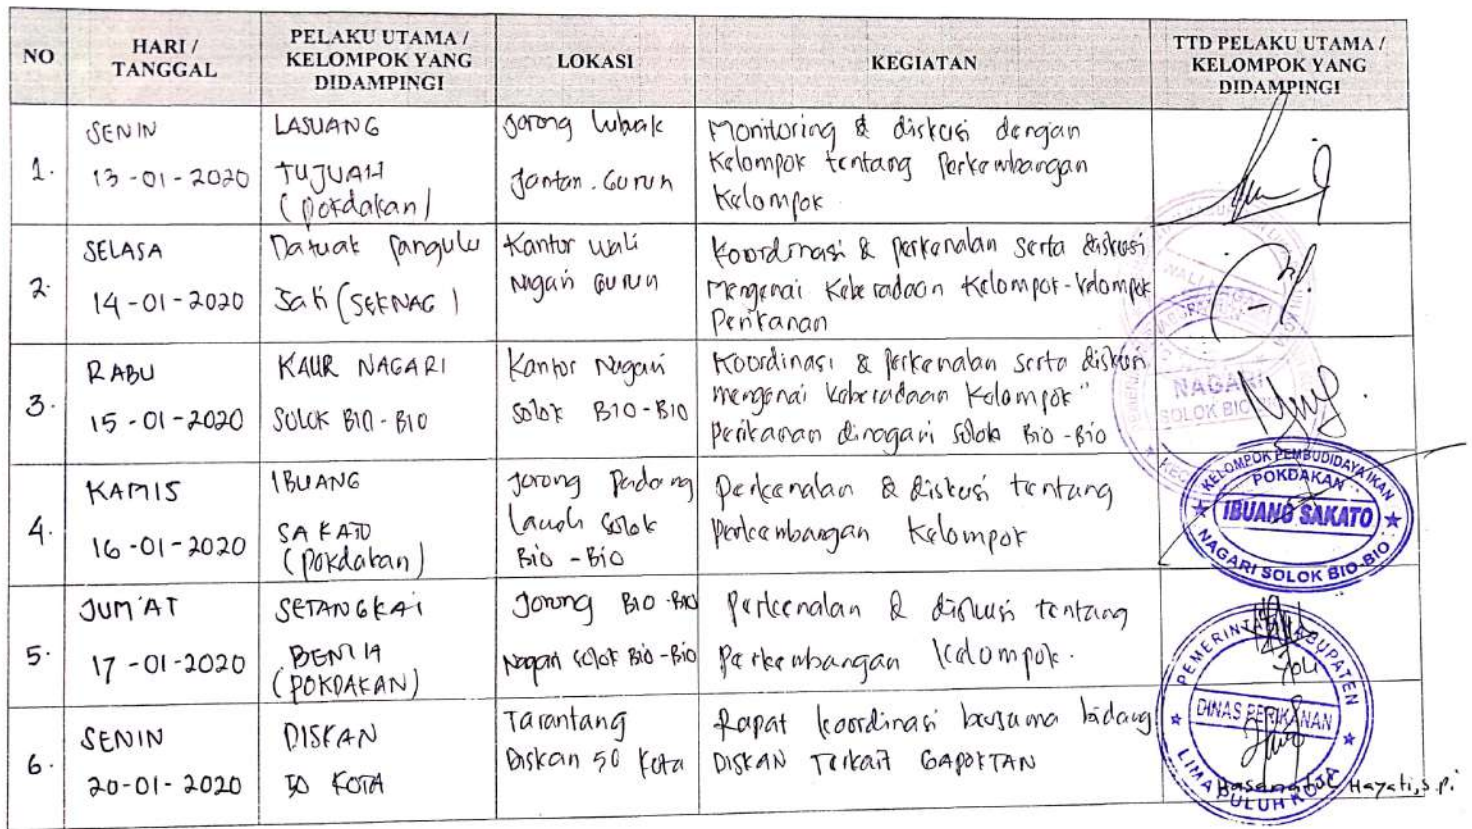 NO
HARI /
TANGGAL
PELAKU UTAMA /
KELOMPOK YANG
DIDAMPINGI
LOKASI
KEGIATAN
TTD PELAKU UTAMA /
KELOMPOK YANG
DIDAMPINGI
1.
SENIN
13-01-2020
LASUANG
TUJUAH
(pokdakan)
Jorong Lubuak
Jantan. Gurun
Monitoring & diskusi dengan
Kelompok tentang Perkembangan
Kelompok
2.
SELASA
14-01-2020
Datuak Pangulu
Sati (SEKNAG)
Kantor wali
Nagari Gurun
Koordinasi & perkenalan serta diskusi
Mengenai Keberadaan Kelompok-Kelompok
Perikanan
3.
RABU
15-01-2020
KAUR NAGARI
SOLOK BIO-BIO
Kantor Nagari
Solok BIO-BIO
Koordinasi & perkenalan serta diskusi
mengenai keberadaan Kelompok"
perikanan dinagari Solok Bio-Bio
NAGARI
SOLOK BIO
4.
KAMIS
16-01-2020
IBUANG
SAKATO
(pokdakan)
Jorong Padang
Laueh Solok
Bio-Bio
Perkenalan & diskusi tentang
Perkembangan Kelompok
KELOMPOK PEMBUDIDAYA IKAN
POKDAKAN
IBUANG SAKATO
NAGARI SOLOK BIO-BIO
5.
JUM'AT
17-01-2020
SETANGKAI
(POKDAKAN)
Jorong BIO-BIO
Nagari Solok Bio-Bio
Perkenalan & diskusi tentang
Perkembangan Kelompok.
Yoli
6.
SENIN
20-01-2020
DISKAN
50 KOTA
Tarantang
Diskan 50 Kota
Rapat koordinasi bersama bidang
DISKAN Terkait GAPOKTAN
PEMERINTAH KABUPATEN
DINAS PERIKANAN
LIMA PULUH KOTA
Hasanatul Hayati, S.Pi